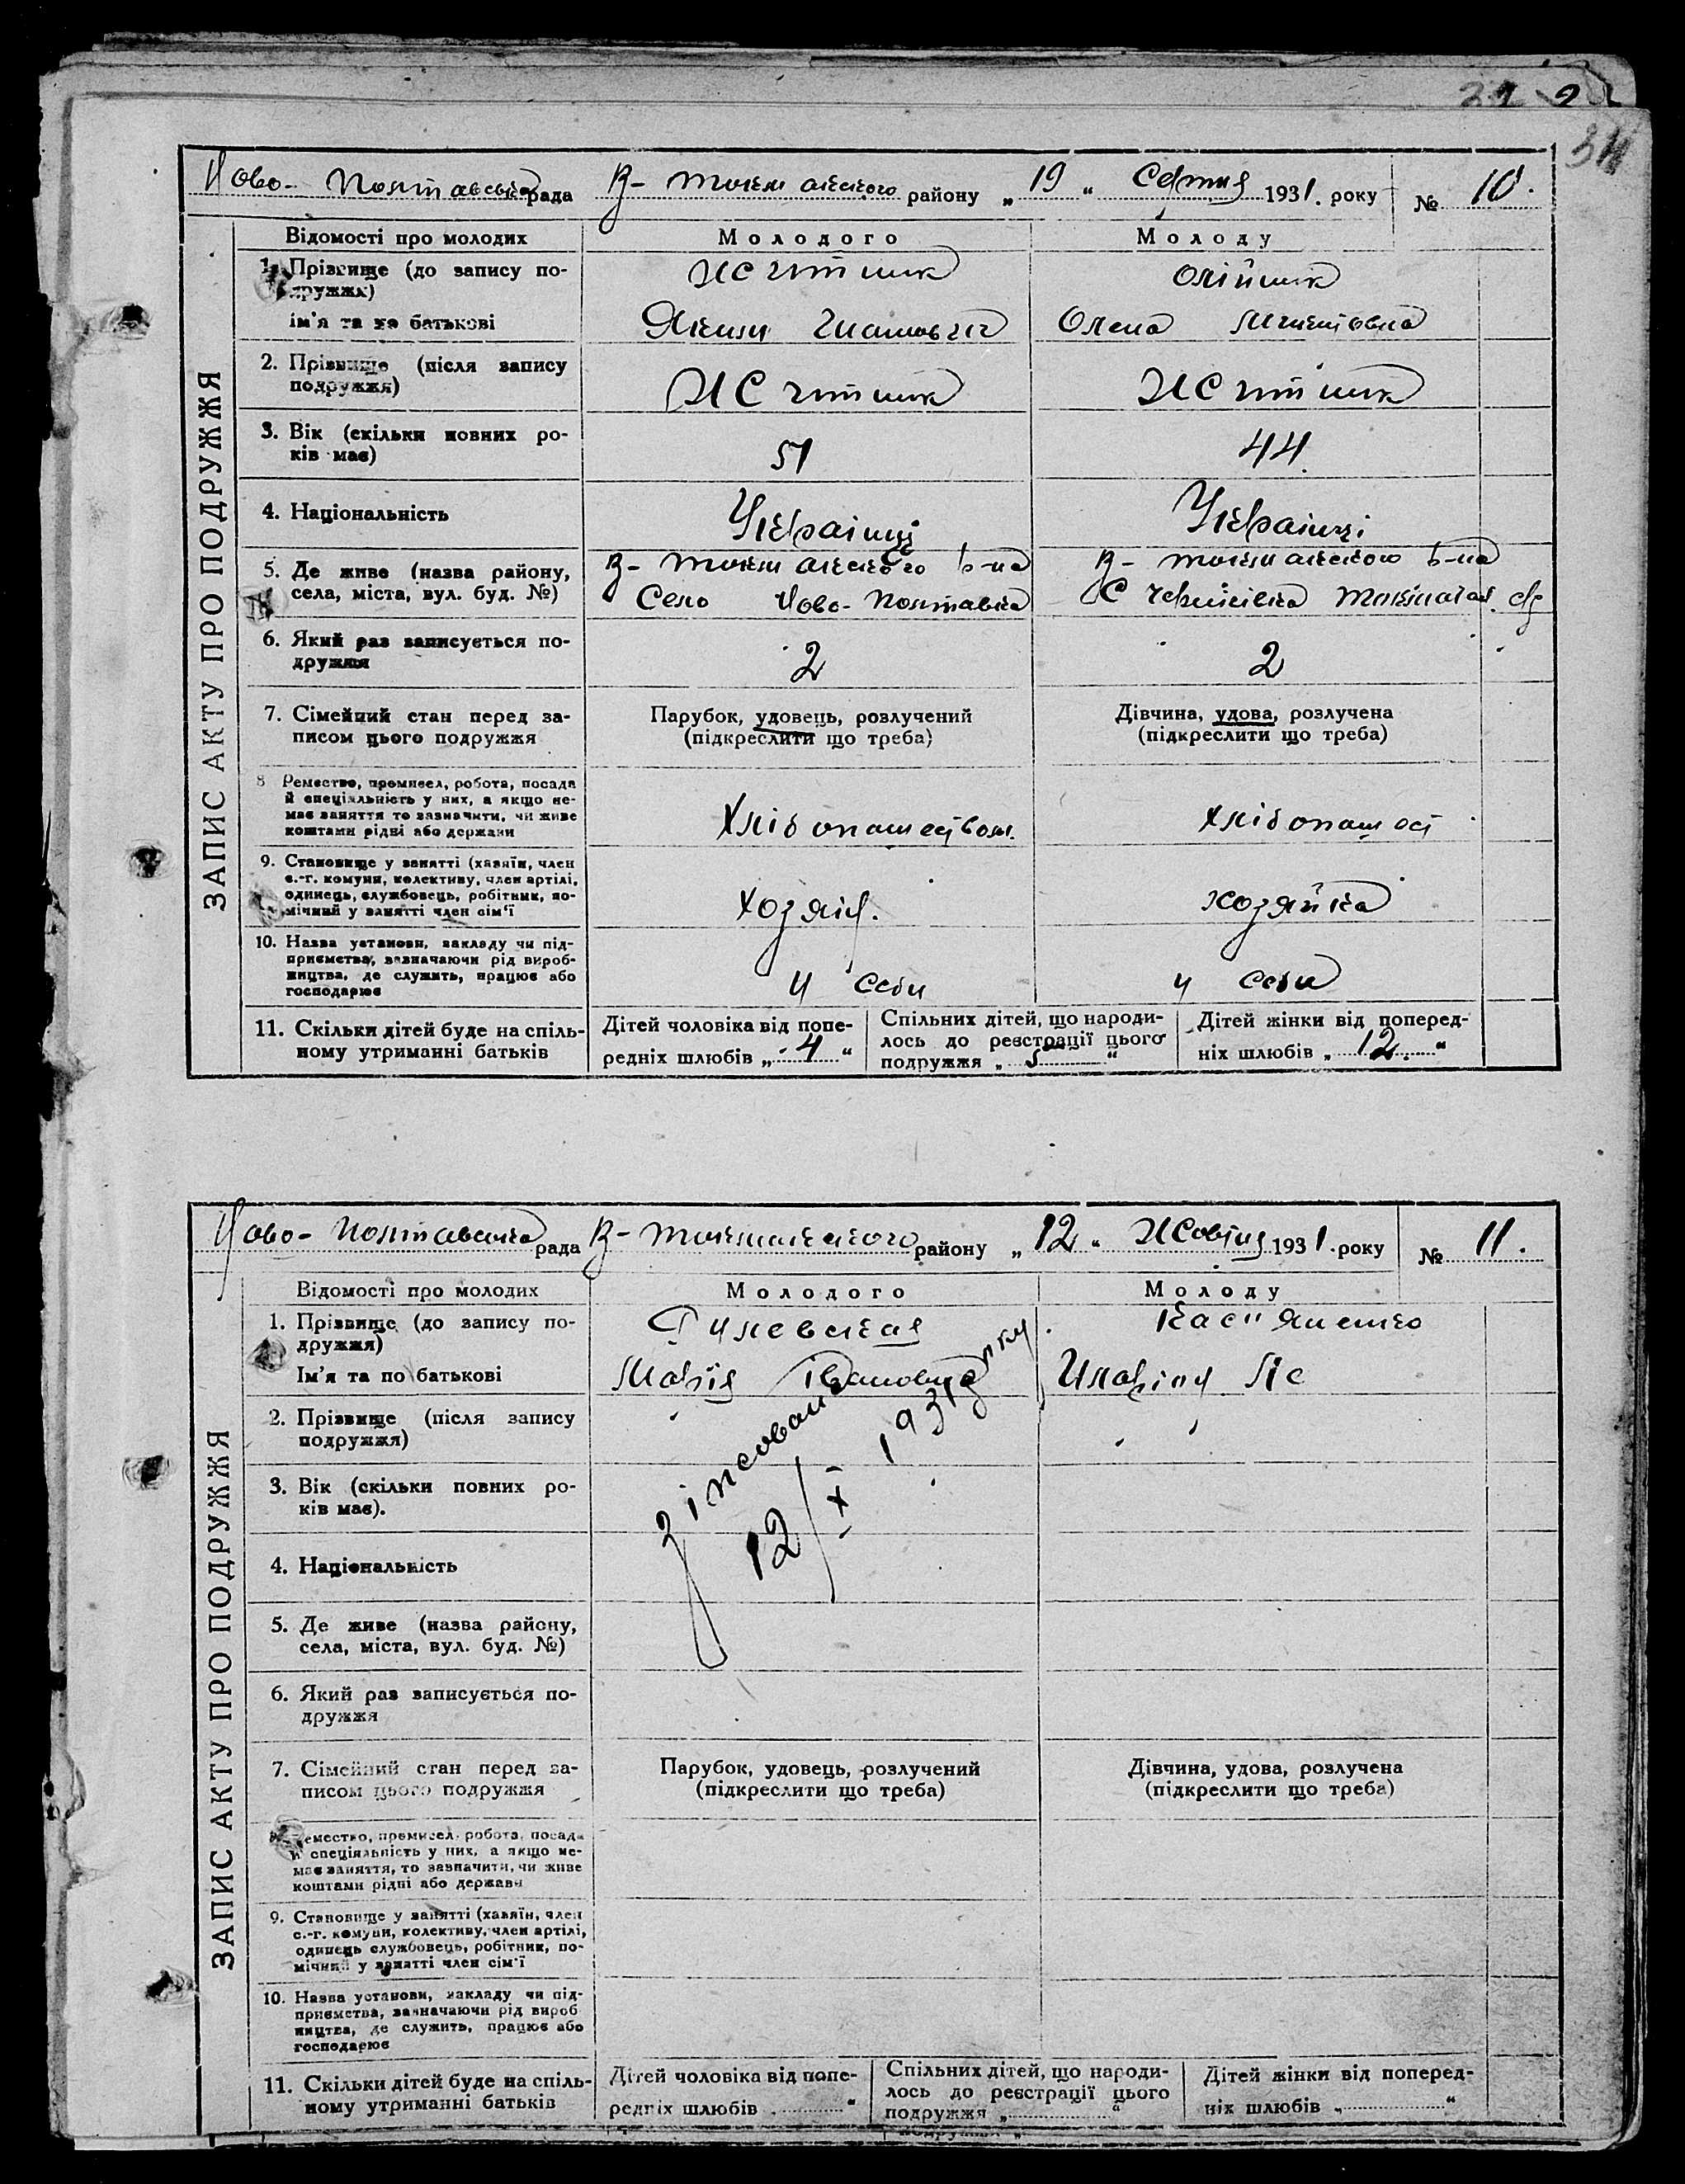 34
Ново-Полтавська рада В-Токмакского району „19" Серпня 1931. року № 10.
ЗАПИС АКТУ ПРО ПОДРУЖЖЯ
Відомості про молодих
Молодого
Молоду
1. Прізвище (до запису подружжя)
Олійник
ім'я та по батькові
Яким
Олена
2. Прізвище (після запису подружжя)
3. Вік (скільки повних років має)
51
44
4. Національність
Українці
Українці
5. Де живе (назва району, села, міста, вул. буд. №)
В-Токмакского р-на
В-Токмакского р-на
Село Ново-Полтавка
С
6. Який раз записується подружжя
2
2
7. Сімейний стан перед записом цього подружжя
Парубок, удовець, розлучений
(підкреслити що треба)
Дівчина, удова, розлучена
(підкреслити що треба)
8 Ремество, промисел, робота, посада й спеціяльність у них, а якщо немає заняття то зазначити, чи живе коштами рідні або держави
Хлібопашеством.
Хлібопаш
9. Становище у занятті (хазяїн, член с.-г. комуни, колективу, член артілі, одинець, службовець, робітник, помічний у занятті член сім'ї
хозяін.
хозяйка
10. Назва установи, закладу чи підприємства, зазначаючи рід виробництва, де служить, працює або господарює
у себи
у себи
11. Скільки дітей буде на спільному утриманні батьків
Дітей чоловіка від попередніх шлюбів „4"
Спільних дітей, що народилось до реєстрації цього подружжя „
Дітей жінки від попередніх шлюбів „12."
Ново-Полтавська рада В-Токмакского району „12" Жовтня 1931. року № 11.
ЗАПИС АКТУ ПРО ПОДРУЖЖЯ
Відомості про молодих
Молодого
Молоду
1. Прізвище (до запису подружжя)
Гулевская
Касьяненко
Ім'я та по батькові
Марія Івановна
2. Прізвище (після запису подружжя)
зіпсован
12/X 1931
3. Вік (скільки повних років має).
4. Національність
5. Де живе (назва району, села, міста, вул. буд. №)
6. Який раз записується подружжя
7. Сімейний стан перед записом цього подружжя
Парубок, удовець, розлучений
(підкреслити що треба)
Дівчина, удова, розлучена
(підкреслити що треба)
ремество, промисел, робота, посада й спеціяльність у них, а якщо немає заняття, то зазначити, чи живе коштами рідні або держави
9. Становище у занятті (хазяїн, член с.-г. комуни, колективу, член артілі, одинець службовець, робітник, помічний у занятті член сім'ї
10. Назва установи, закладу чи підприємства, зазначаючи рід виробництва, де служить, працює або господарює
11. Скільки дітей буде на спільному утриманні батьків
Дітей чоловіка від попередніх шлюбів „ "
Спільних дітей, що народилось до реєстрації цього подружжя „ "
Дітей жінки від попередніх шлюбів „ "